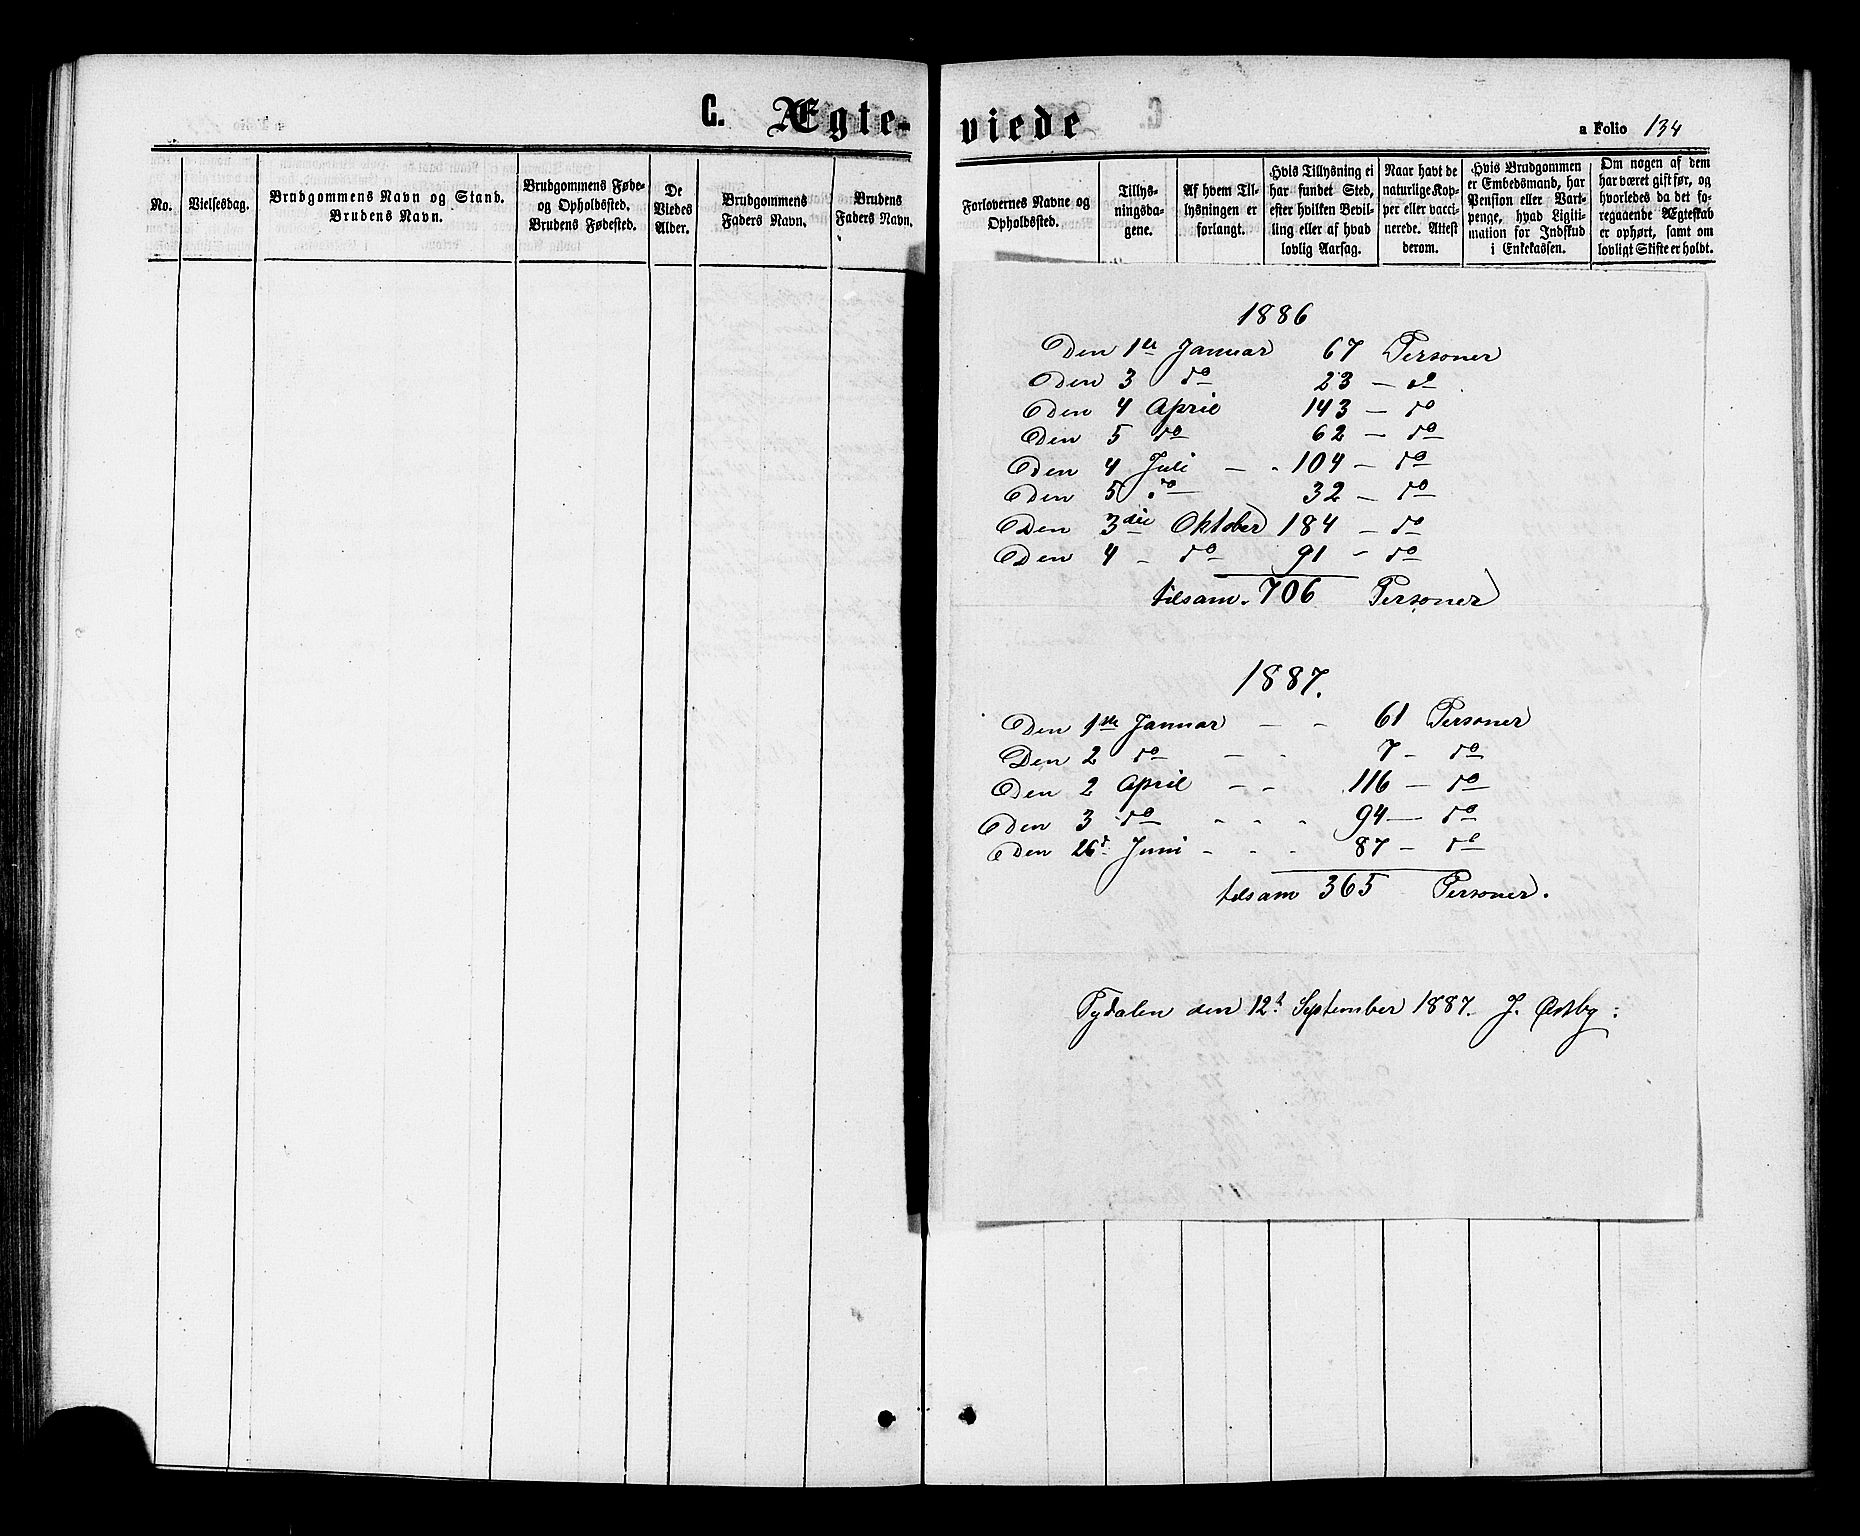 C. Ægte-
viede
a Folio 134
No.
Vielsesdag.
Brudgommens Navn og Stand.
Brudens Navn.
Brudgommens Føde-
og Opholdssted.
Brudens Fødested.
De
Viedes
Alder.
Brudgommens
Faders Navn.
Brudens
Faders Navn.
Forlovernes Navne og
Opholdssted.
Tillys-
ningsda-
gene.
Af hvem Til-
lysningen er
forlangt.
Hvis Tillysning ei
har fundet Sted,
efter hvilken Bevil-
ling eller af hvad
lovlig Aarsag.
Naar havt de
naturlige Kop-
per eller vacci-
nerede. Attest
derom.
Hvis Brudgommen
er Embedsmand, har
Pension eller Vart-
penge, hvad Ligiti-
mation for Indskud
i Enkekassen.
Om nogen af dem
har været gift før, og
hvorledes da det fo-
regaaende Ægteskab
er ophørt, samt om
lovligt Skifte er holdt.
1886
Den 1ste Januar 67 Personer
Den 3 do 23 — do
Den 4 April 143 — do
Den 5 do 62 — do
Den 4 Juli — - 104 — do
Den 5 do — 32 — do
Den 3die Oktober 184 — do
Den 4 - do 91 - do
tilsam. 706 Personer
1887.
Den 1ste Januar — - 61 Personer
Den 2 do — - 7 — do
Den 2 April — - 116 — do
Den 3 do - - - 94 — do
Den 26d Juni - - - 87 — do
tilsam 365 Personer.
Tydalen den 12t September 1887. J. Østby: